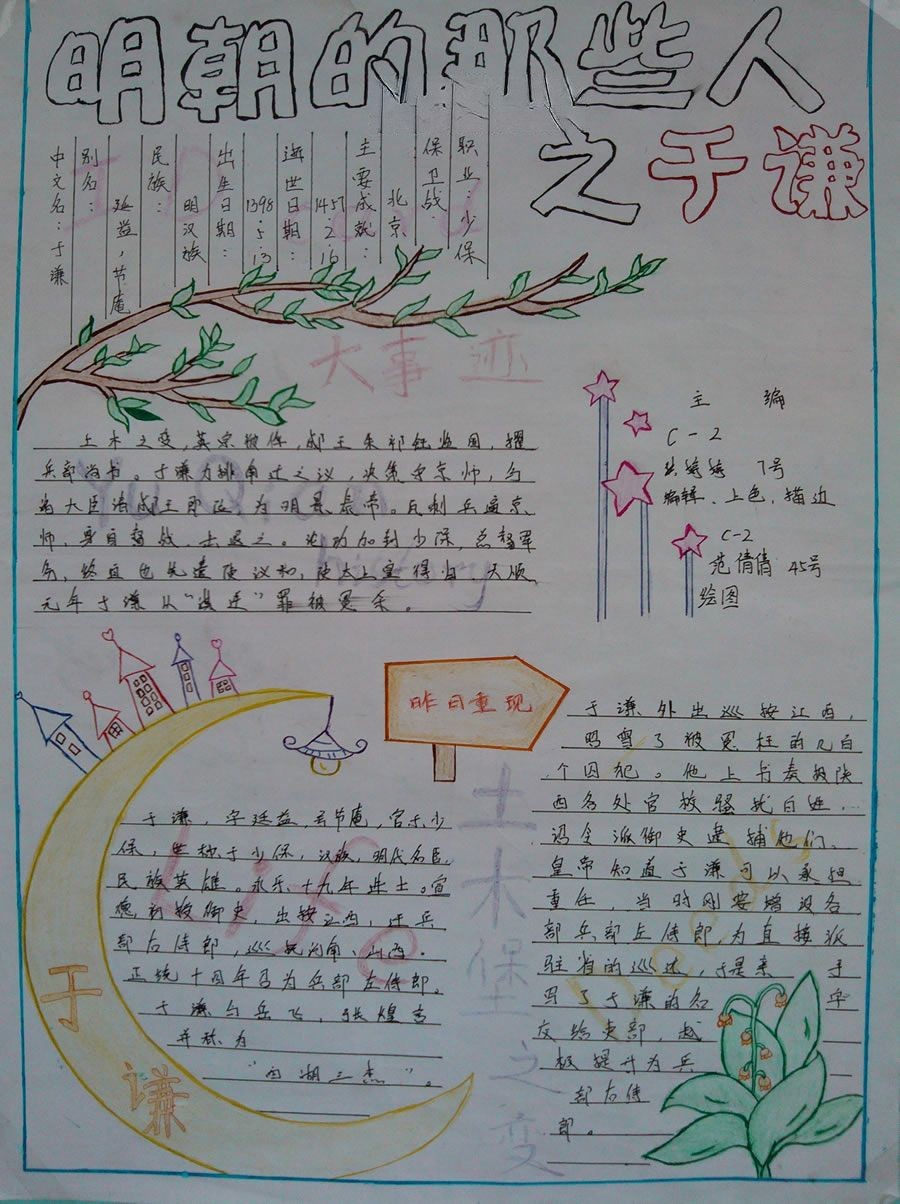 明朝的那些人
之于谦
中文名：于谦
别名：
延益，节庵
民族：
明汉族
出生日期：
1398.5.13
逝世日期：
1457.2.16
主要成就：
北京
保卫战
职业：少保
ID card
大事迹
土木之变，英宗被俘，郕王朱祁钰监国，擢
兵部尚书。于谦力排南迁之议，决策守京师，与
诸大臣请郕王即位，为明景泰帝。瓦剌兵逼京
师，身自督战，击退之。论功加封少保，总督军
务，终迫也先遣使议和，使太上皇得归。天顺
元年于谦以“谋逆”罪被冤杀。
Yu Qian
history
主 编
C-2
7号
编辑、上色，描边
C-2
范倩倩 45号
绘图
昨日重现
于谦，字廷益，号节庵，官至少
保，世称于少保，汉族，明代名臣，
民族英雄。永乐十九年进士。宣
德初授御史，出按江西，迁兵
部右侍郎，巡抚河南、山西。
正统十四年召为兵部左侍郎。
于谦与岳飞，张煌言
并称为
“西湖三杰”。
Life
于谦
土木堡之变
于谦外出巡按江西，
昭雪了被冤枉的几百
个囚犯。他上书奏报陕
西各处官校骚扰百姓…
诏令派御史逮捕他们。
皇帝知道于谦可以承担
重任，当时刚要增设各
部兵部左侍郎，为直接派
驻省的巡抚，于是亲 手
写了于谦的名 字
交给吏部，越
级提升为兵
部右侍
郎。